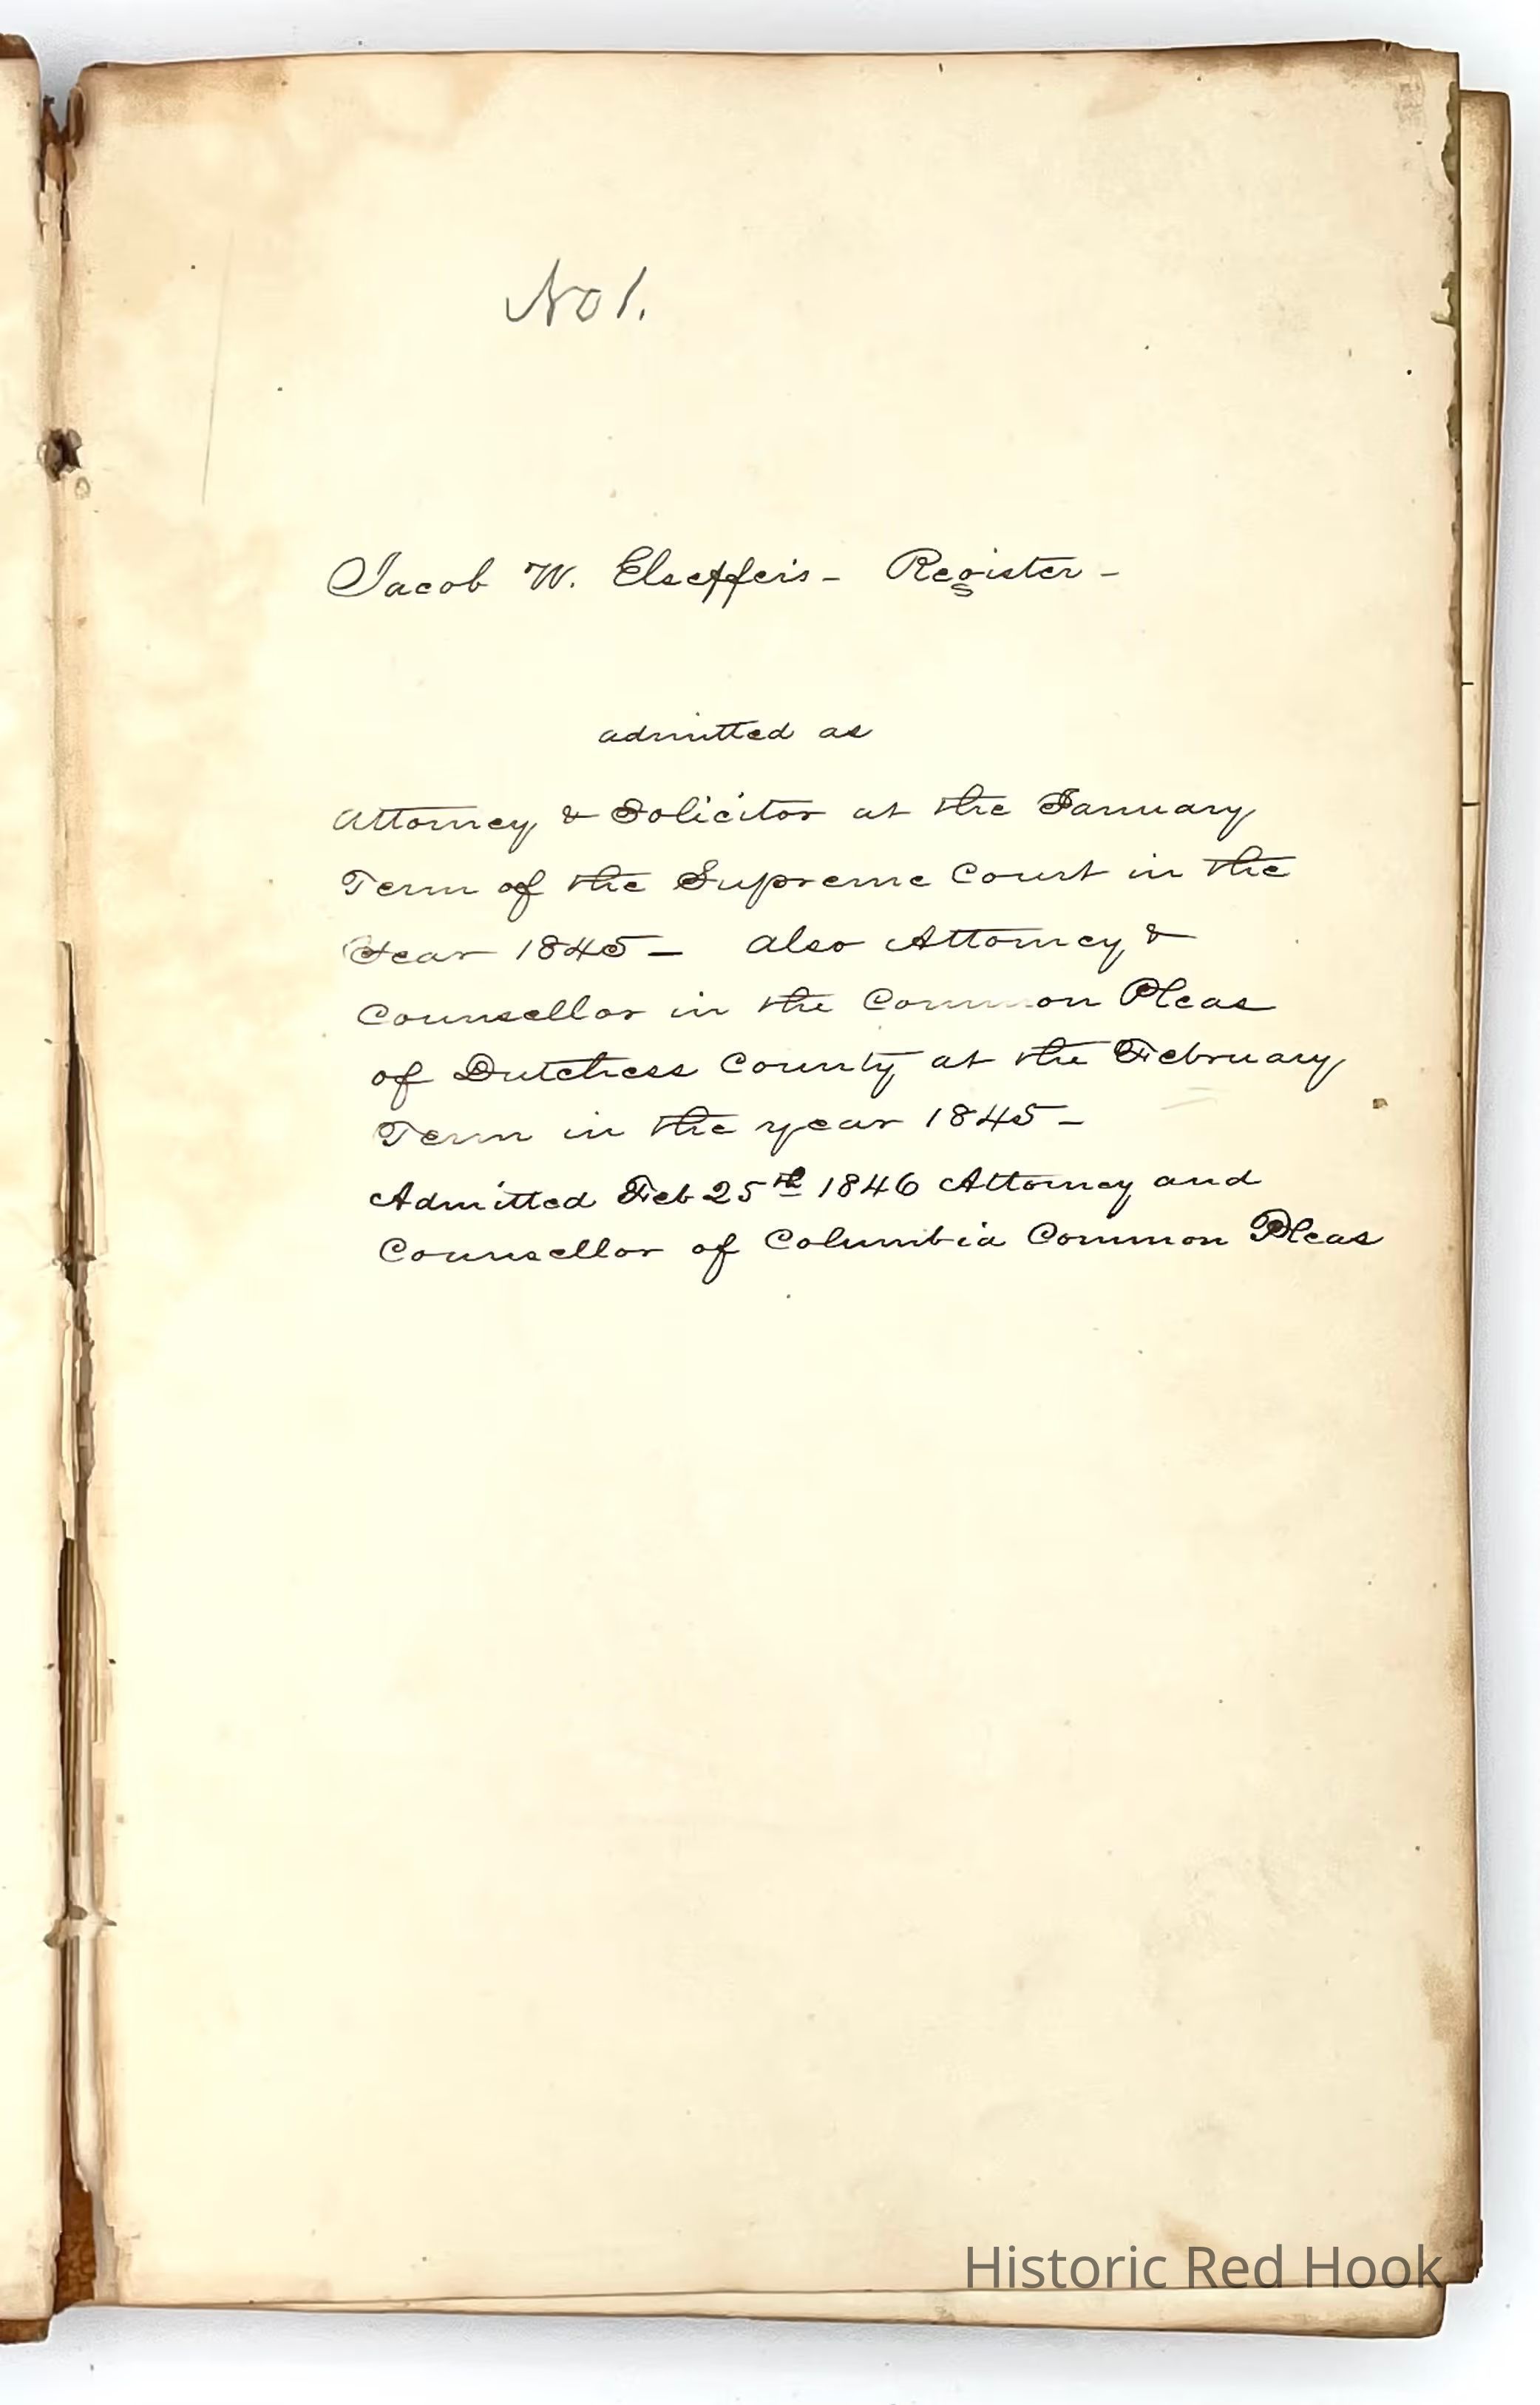 No 1.
Jacob W. Elseffer's - Register -
admitted as
Attorney & Solicitor at the January
Term of the Supreme Court in the
Year 1845 - also Attorney &
Counsellor in the Common Pleas
of Dutchess County at the February
Term in the year 1845 -
Admitted Feb 25th 1846 Attorney and
Counsellor of Columbia Common Pleas
Historic Red Hook